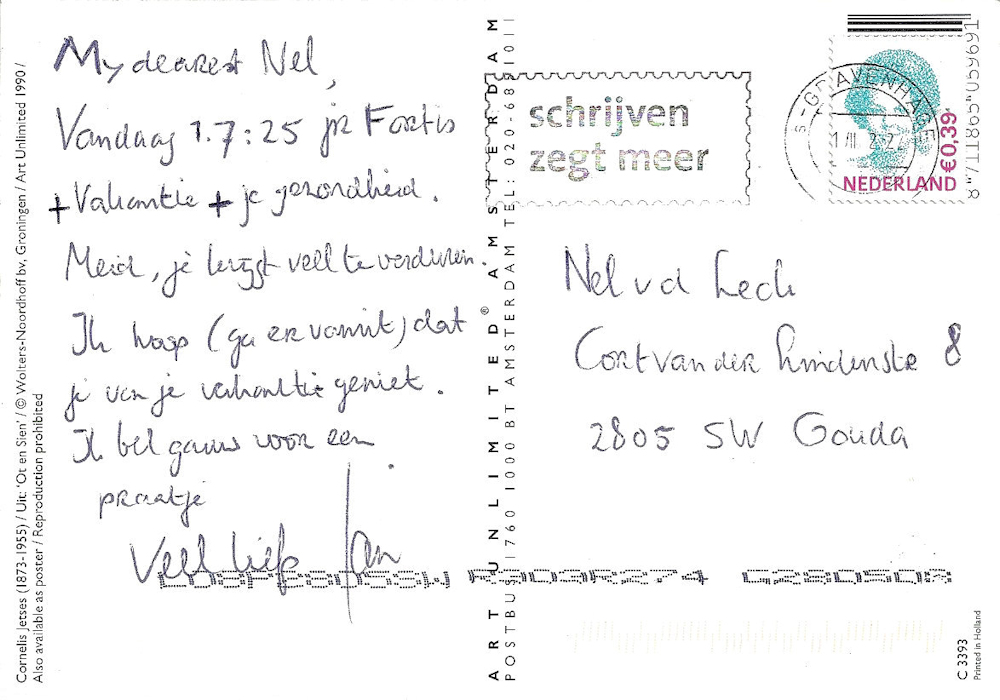 My dearest Nel,
Vandaag 1.7:25 jr Fortis
+ Vakantie + je gezondheid.
Meid, je krijgt veel te verduren.
Ik hoop (ga er vanuit) dat
je van je vakantie geniet.
Ik bel gauw voor een
praatje.
Veel liefs Jan
schrijven
zegt meer
'S-GRAVENHAGE
NEDERLAND €0,39
Nel vd Leck
Cort van der Lindenstr 8
2805 SW Gouda
ART UNLIMITED® AMSTERDAM
POSTBUS 1760 1000 BT AMSTERDAM TEL: 020-6891011
Cornelis Jetses (1873-1955) / Uit: 'Ot en Sien' / © Wolters-Noordhoff bv, Groningen / Art Unlimited 1990 /
Also available as poster / Reproduction prohibited
C 3393
Printed in Holland